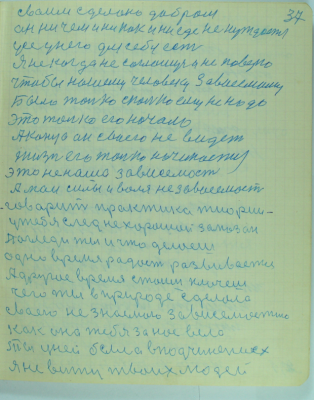 37
своим сделано добром
он ни чем и никак и нигде не нуждается
усе у него для себе ест
Я некогда не соглашуся не поверю
чтобы нашему человеку Зависемышу
было только сколко ему не надо
это только его начало
А конца он своего не видет
жизн его только начинается
это не наша зависемост
А мои силы и воля независемост
говарит практика теории
у тебя следнехороший запозан
Погледи ты и что делаем
одно время радост развивается
А другое время стоим плачем
чего ты в природе сделала
своею не знаемого зависемостию
как она тебя за ное вела
ты у ней была в подчинениях
Я не вижу твоих людей